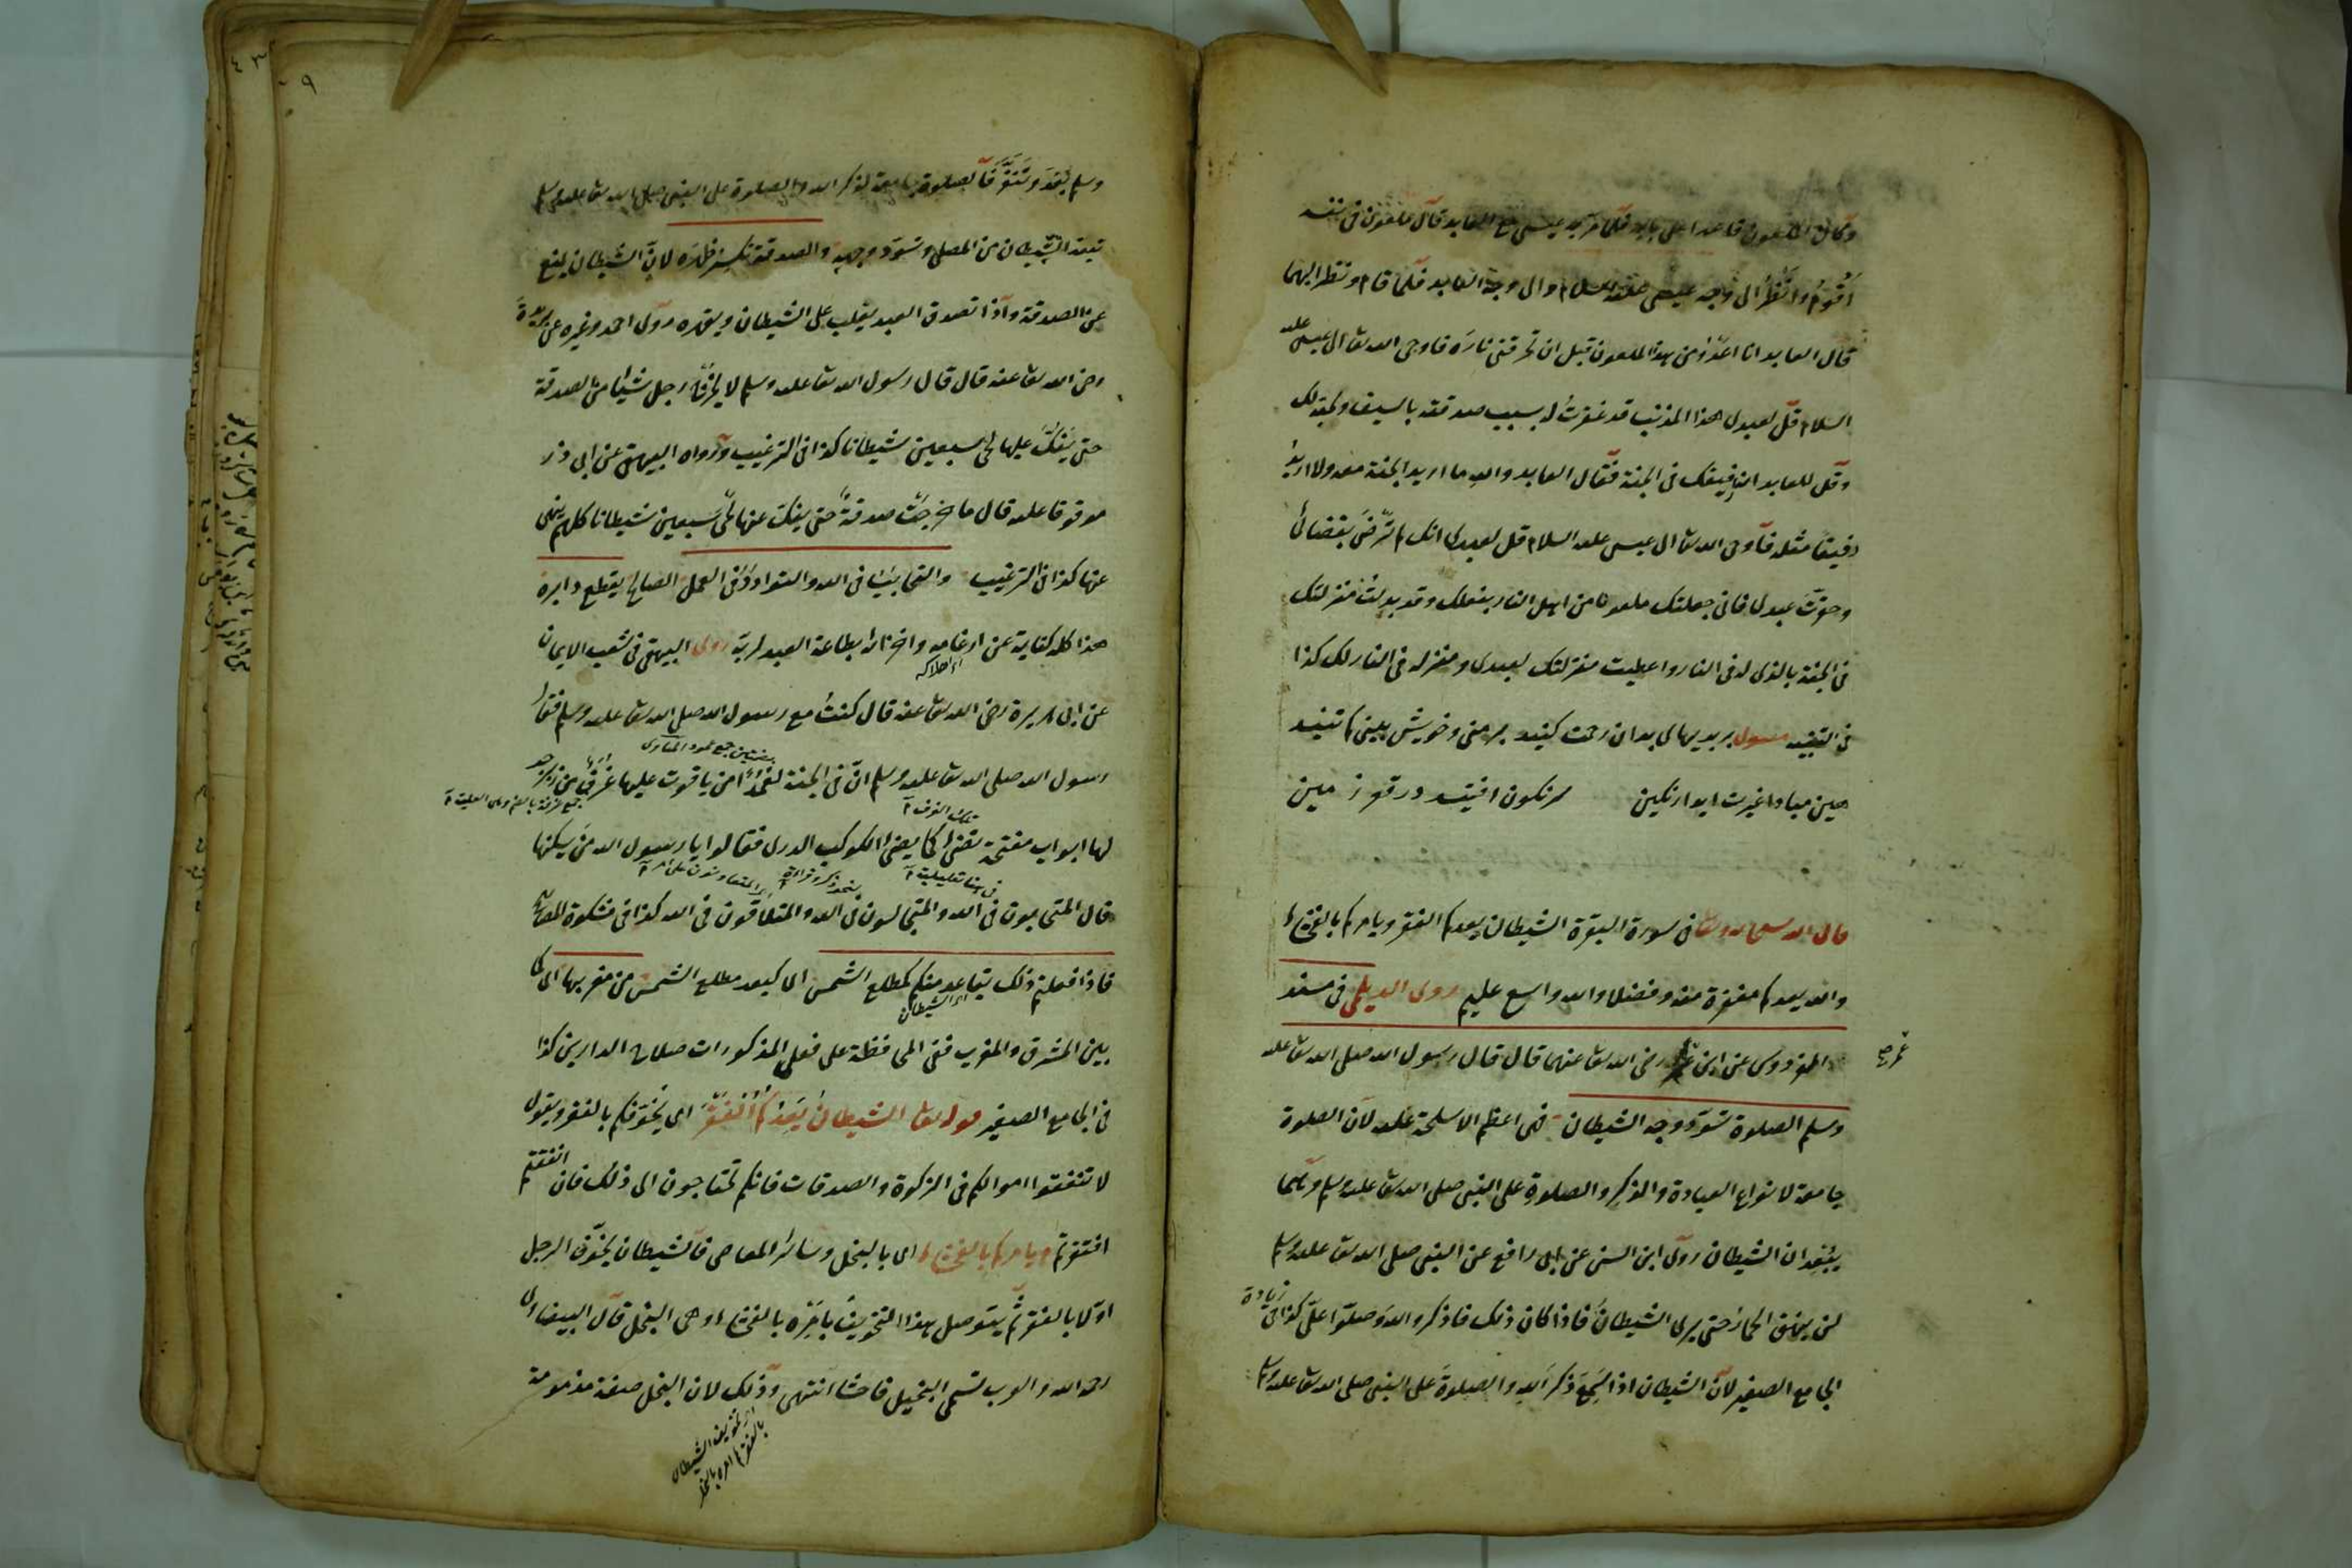 وكان الملعون قاعدا على بابه فلما مر به عيسى مع العابد قال الملعون في نفسه
اقوم وانظر الى وجه عيسى عليه السلام والى وجه العابد فلما قام ونظر اليهما
قال العابد انا اعوذ من هذا الملعون قبل ان تحرقني ناره فاوحى الله تعالى الى عيسى عليه
السلام قل لعبدي هذا المذنب قد غفرت له بسبب
وقل للعابد انه رفيقك في الجنة فقال العابد والله ما اريد الجنة معه ولا اريد
رفيقا مثله فاوحى الله تعالى الى عيسى عليه السلام قل لعبدي انك لم ترض بقضائي
وحقرت عبدي فاني جعلتك ملعونا من اهل النار بفعلك وقد بدلت منزلتك
في الجنة بالذي له في النار واعطيت منزلتك لعبدي ومنزله في النار لك كذا
في
هين مبادا غيرت ايد از كمين سرنكون افتيد در قعر زمين
قال الله سبحانه وتعالى في سورة البقرة الشيطان يعدكم الفقر ويامركم بالفحشاء
والله يعدكم مغفرة منه وفضلا والله واسع عليم روى الديلمي في مسند
الفردوس عن ابن عمر رضي الله تعالى عنهما قال قال رسول الله صلى الله تعالى عليه
عمر صح
وسلم الصلوة تسود وجه الشيطان فهي اعظم الاسلحة عليه لان الصلوة
جامعة لانواع العبادة والذكر والصلوة على النبي صلى الله تعالى عليه وسلم وكلها
يبعدان الشيطان روى ابن السني عن ابي رافع عن النبي صلى الله تعالى عليه وسلم
لن ينهق الحمار حتى يرى الشيطان فاذا كان ذلك فاذكروا الله وصلوا علي كذا في زيادة
الجامع الصغير لان الشيطان اذا سمع ذكر الله والصلوة على النبي صلى الله تعالى عليه وسلم
٩
وسلم يبعد فالصلوة جامعة لذكر الله والصلوة على النبي صلى الله تعالى عليه وسلم
تبعد الشيطان من المصلي وتسود وجهه والصدقة تكسر ظهره لان الشيطان يمنع
عن الصدقة واذا تصدق العبد يغلب على الشيطان ويقهره روى احمد وغيره عن بريدة
رضي الله تعالى عنه قال قال رسول الله تعالى عليه وسلم لا يخرج رجل شيئا من الصدقة
حتى يفك عليها لحي سبعين شيطانا كذا في الترغيب ورواه البيهقي عن ابي ذر
موقوفا عليه قال ما خرجت صدقة حتى يفك عنها لحي سبعين شيطانا كلهم ينهى
عنها كذا في الترغيب والتحابب في الله والتوادد في العمل الصالح يقطع دابره
هذا كله كناية عن ارغامه واخزائه بطاعة العبد لربه روى البيهقي في شعب الايمان
اي اهلاكه
عن ابي هريرة رضي الله تعالى عنه قال كنت مع رسول الله صلى الله تعالى عليه وسلم فقال
بضمتين جمع عمود المناوي
رسول الله صلى الله تعالى عليه وسلم ان في الجنة لعمدا من ياقوت عليها غرف من زبرجد
تلك الغرف
لها ابواب مفتحة تضيء كما يضيء الكوكب الدري فقالوا يا رسول الله من يسكنها
في هنا تعليلية
قال المتحابون في الله والمتجالسون في الله والمتلاقون في الله كذا في مشكوة المصابيح
فاذا فعلتم ذلك يتباعد منكم كمطلع الشمس اي كبعد مطلع الشمس من مغربها اي كما
اي الشيطان
بين المشرق والمغرب ففي المحافظة على فعل المذكورات صلاح الدارين كذا
في الجامع الصغير قوله تعالى الشيطان يعدكم الفقر اي يخوفكم بالفقر ويقول
لا تنفقوا اموالكم في الزكوة والصدقات فانكم تحتاجون الى ذلك فان انفقتم
افتقرتم ويامركم بالفحشاء اي بالبخل وسائر المعاصي فالشيطان يخوف الرجل
اولا بالفقر ثم يتوصل بهذا التخويف بامره بالفحشاء وهي البخل قال البيضاوي
رحمه الله والعرب تسمي البخيل فاحشا انتهى وذلك لان البخل صفة مذمومة
اي تخويف الشيطان
بالفقر ثم امره بالبخل